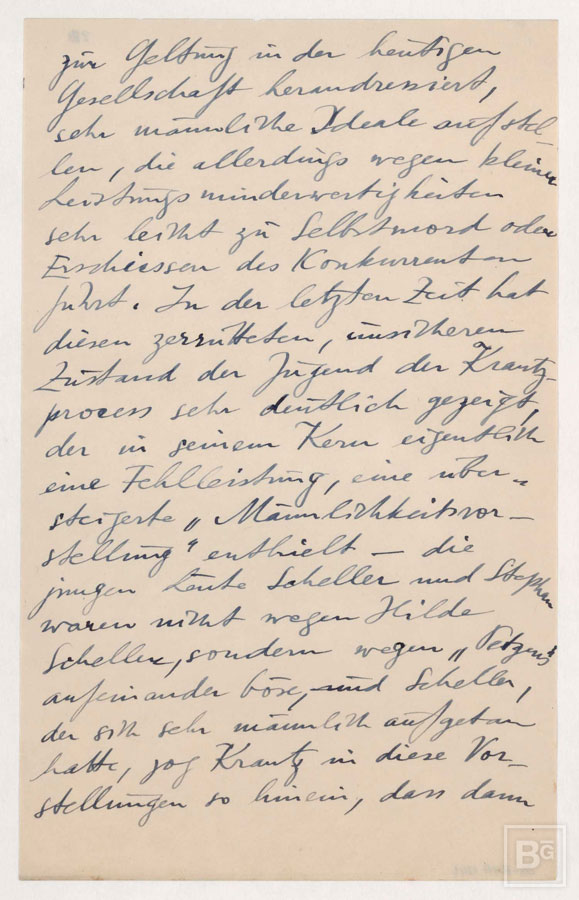 zur Geltung in der heutigen
Gesellschaft herandressiert,
sehr männliche Ideale aufstel-
len, die allerdings wegen kleiner
Leistungsminderwertigkeiten
sehr leicht zu Selbstmord oder
Erschiessen des Konkurrenten
führt. In der letzten Zeit hat
diesen zerrütteten, unsicheren
Zustand der Jugend der Krantz-
process sehr deutlich gezeigt,
der in seinem Kern eigentlich
eine Fehlleistung, eine über-
steigerte „Männlichkeitsvor-
stellung" enthielt — die
jungen Leute Scheller und Stephan
waren nicht wegen Hilde
Scheller, sondern wegen „Petzens"
aufeinander böse, und Scheller,
der sich sehr männlich aufgetan
hatte, zog Krantz in diese Vor-
stellungen so hinein, dass dann
BG